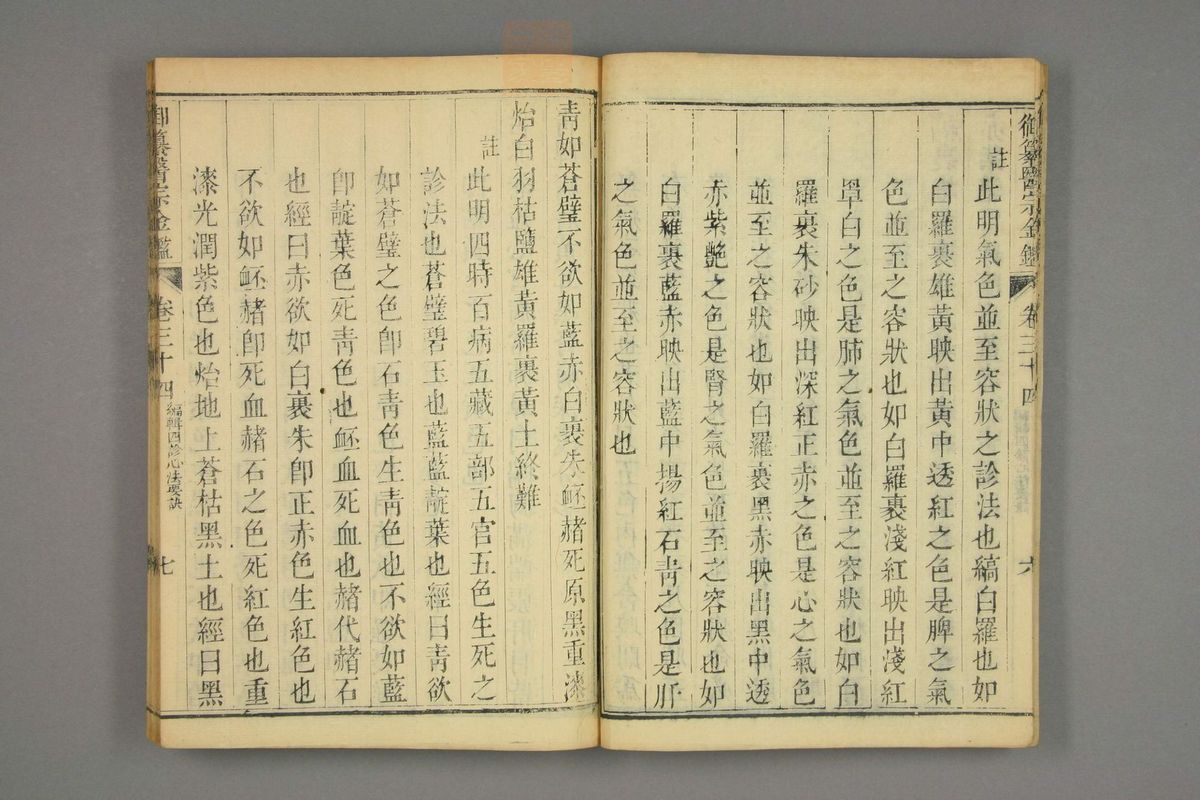 御纂醫宗金鑑 卷三十四 六
註 此明氣色並至容狀之診法也縞白羅也如
白羅裹雄黃映出黃中透紅之色是脾之氣
色並至之容狀也如白羅裹淺紅映出淺紅
罩白之色是肺之氣色並至之容狀也如白
羅裹朱砂映出深紅正赤之色是心之氣色
並至之容狀也如白羅裹黑赤映出黑中透
赤紫艷之色是腎之氣色並至之容狀也如
白羅裹藍赤映出藍中揚紅石青之色是肝
之氣色並至之容狀也
青如蒼璧不欲如藍赤白裹朱衃赭死原黑重漆
炲白羽枯鹽雄黃羅裹黃土終難
註 此明四時百病五藏五部五官五色生死之
診法也蒼璧碧玉也藍藍靛葉也經曰青欲
如蒼璧之色卽石青色生青色也不欲如藍
卽靛葉色死青色也衃血死血也赭代赭石
也經曰赤欲如白裹朱卽正赤色生紅色也
不欲如衃赭卽死血赭石之色死紅色也重
漆光潤紫色也炲地上蒼枯黑土也經曰黑
御纂醫宗金鑑 卷三十四 編輯四診心法要訣 七